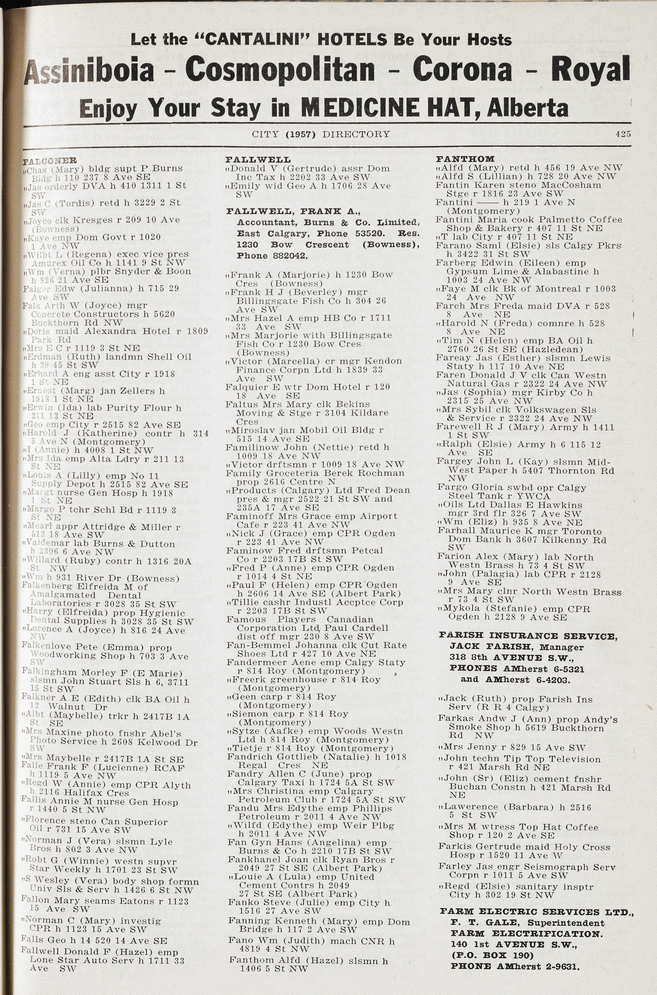 Let the "CANTALINI" HOTELS Be Your Hosts
Assiniboia - Cosmopolitan - Corona - Royal
Enjoy Your Stay in MEDICINE HAT, Alberta
CITY (1957) DIRECTORY 425
FALCONER
„Chas (Mary) bldg supt P Burns
Bldg h 110 237 8 Ave SE
„Jas orderly DVA h 410 1311 1 St
SW
„Jas C (Tordis) retd h 3229 2 St
SW
„Joyce clk Kresges r 209 10 Ave
(Bowness)
„Kaye emp Dom Govt r 1020
1 Ave NW
„Wilbt L (Regena) exec vice pres
Amurex Oil Co h 1141 9 St NW
„Wm (Verna) plbr Snyder & Boon
h 826 21 Ave SE
Falger Edw (Julianna) h 715 29
Ave SW
Falk Arth W (Joyce) mgr
Concrete Constructors h 5620
Buckthorn Rd NW
„Doris maid Alexandra Hotel r 1809
Park Rd
„Mrs E C r 1119 3 St NE
„Erdman (Ruth) landmn Shell Oil
h 39 45 St SW
„Erhard A eng asst City r 1918
1 St NE
„Ernest (Marg) jan Zellers h
1913 1 St NE
„Erwin (Ida) lab Purity Flour h
211 13 St NE
„Geo emp City r 2515 82 Ave SE
„Harold J (Katherine) contr h 314
5 Ave N (Montgomery)
„I (Annie) h 4008 1 St NW
„Mrs Ida emp Alta Ldry r 211 13
St NE
„Louis A (Lilly) emp No 1
Supply Depot h 2515 82 Ave SE
„Margt nurse Gen Hosp h 1918
1 St NE
„Margo P tchr Schl Bd r 1119 3
St NE
„Mearl appr Attridge & Miller r
512 18 Ave SW
„Valdemar lab Burns & Dutton
h 2306 6 Ave NW
„Willard (Ruby) contr h 1316 20A
St NW
„Wm h 931 River Dr (Bowness)
Falkenberg Elfreida M of
Amalgamated Dental
Laboratories r 3028 35 St SW
„Harry (Elfreida) prop Hygienic
Dental Supplies h 3028 35 St SW
„Lorence A (Joyce) h 816 24 Ave
NW
Falkenlove Pete (Emma) prop
Woodworking Shop h 703 3 Ave
SW
Falkingham Morley F (E Marie)
slsmn John Stuart Sls h 6, 3711
15 St SW
Falkner A E (Edith) clk BA Oil h
12 Walnut Dr
„Albt (Maybelle) trkr h 2417B 1A
St SE
„Mrs Maxine photo fnshr Abel's
Photo Service h 2608 Kelwood Dr
SW
„Mrs Maybelle r 2417B 1A St SE
Falle Frank F (Lucienne) RCAF
h 1119 5 Ave NW
„Regd W (Annie) emp CPR Alyth
h 2116 Halifax Cres
Fallis Annie M nurse Gen Hosp
r 1440 5 St NW
„Florence steno Can Superior
Oil r 731 15 Ave SW
„Norman J (Vera) slsmn Lyle
Bros h 802 3 Ave NW
„Robt G (Winnie) westn supvr
Star Weekly h 1701 23 St SW
„S Wesley (Vera) body shop formn
Univ Sls & Serv h 1426 6 St NW
Fallon Mary seams Eatons r 1123
15 Ave SW
„Norman C (Mary) investig
CPR h 1123 15 Ave SW
Falls Geo h 14 520 14 Ave SE
Fallwell Donald F (Hazel) emp
Lone Star Auto Serv h 1711 33
Ave SW
FALLWELL
„Donald V (Gertrude) assr Dom
Inc Tax h 2202 33 Ave SW
„Emily wid Geo A h 1706 28 Ave
SW
FALLWELL, FRANK A.,
Accountant, Burns & Co. Limited,
East Calgary, Phone 53520. Res.
1230 Bow Crescent (Bowness),
Phone 882042.
„Frank A (Marjorie) h 1230 Bow
Cres (Bowness)
„Frank H J (Beverley) mgr
Billingsgate Fish Co h 304 26
Ave SW
„Mrs Hazel A emp HB Co r 1711
33 Ave SW
„Mrs Marjorie with Billingsgate
Fish Co r 1230 Bow Cres
(Bowness)
„Victor (Marcella) cr mgr Kendon
Finance Corpn Ltd h 1839 33
Ave SW
Falquier E wtr Dom Hotel r 120
18 Ave SE
Faltus Mrs Mary clk Bekins
Moving & Stge r 3104 Kildare
Cres
„Miroslav jan Mobil Oil Bldg r
515 14 Ave SE
Familinow John (Nettie) retd h
1009 18 Ave NW
„Victor drftsmn r 1009 18 Ave NW
Family Groceteria Berek Rochman
prop 2616 Centre N
„Products (Calgary) Ltd Fred Dean
pres & mgr 2522 21 St SW and
235A 17 Ave SE
Faminoff Mrs Grace emp Airport
Cafe r 223 41 Ave NW
„Nick J (Grace) emp CPR Ogden
r 223 41 Ave NW
Faminow Fred drftsmn Petcal
Co r 2203 17B St SW
„Fred P (Anne) emp CPR Ogden
r 1014 4 St NE
„Paul F (Helen) emp CPR Ogden
h 2606 14 Ave SE (Albert Park)
„Tillie cashr Industl Accptce Corp
r 2203 17B St SW
Famous Players Canadian
Corporation Ltd Paul Cardell
dist off mgr 230 8 Ave SW
Fan-Bemmel Johanna clk Cut Rate
Shoes Ltd r 427 10 Ave NE
Fandermeer Aene emp Calgy Staty
r 814 Roy (Montgomery)
„Freerk greenhouse r 814 Roy
(Montgomery)
„Geen carp r 814 Roy
(Montgomery)
„Siemon carp r 814 Roy
(Montgomery)
„Sytze (Aafke) emp Woods Westn
Ltd h 814 Roy (Montgomery)
„Tietje r 814 Roy (Montgomery)
Fandrich Gottlieb (Natalie) h 1018
Regal Cres NE
Fandry Allen C (June) prop
Calgary Taxi h 1724 5A St SW
„Mrs Christina emp Calgary
Petroleum Club r 1724 5A St SW
Fandu Mrs Edythe emp Phillips
Petroleum r 2011 4 Ave NW
„Wilfd (Edythe) emp Weir Plbg
h 2011 4 Ave NW
Fan Gyn Hans (Angelina) emp
Burns & Co h 2210 17B St SW
Fankhanel Joan clk Ryan Bros r
2049 27 St SE (Albert Park)
„Louie A (Lula) emp United
Cement Contrs h 2049
27 St SE (Albert Park)
Fanko Steve (Julie) emp City h
1516 27 Ave SW
Fanning Kenneth (Mary) emp Dom
Bridge h 117 2 Ave SW
Fano Wm (Judith) mach CNR h
4819 4 St NW
Fanthom Alfd (Hazel) slsmn h
1406 5 St NW
FANTHOM
„Alfd (Mary) retd h 456 19 Ave NW
„Alfd S (Lillian) h 728 20 Ave NW
Fantin Karen steno MacCosham
Stge r 1816 23 Ave SW
Fantini —— h 219 1 Ave N
(Montgomery)
Fantini Maria cook Palmetto Coffee
Shop & Bakery r 407 11 St NE
„T lab City r 407 11 St NE
Farano Saml (Elsie) sls Calgy Pkrs
h 3422 31 St SW
Farberg Edwin (Eileen) emp
Gypsum Lime & Alabastine h
1003 24 Ave NW
„Faye M clk Bk of Montreal r 1003
24 Ave NW
Farch Mrs Freda maid DVA r 528
8 Ave NE
„Harold N (Freda) comnre h 528
8 Ave NE
„Tim N (Helen) emp BA Oil h
2760 26 St SE (Hazledean)
Fareay Jas (Esther) slsmn Lewis
Staty h 117 10 Ave NE
Faren Donald J V clk Can Westn
Natural Gas r 2322 24 Ave NW
„Jas (Sophia) mgr Kirby Co h
2315 25 Ave NW
„Mrs Sybil clk Volkswagen Sls
& Service r 2322 24 Ave NW
Farewell R J (Mary) Army h 1411
1 St SW
„Ralph (Elsie) Army h 6 115 12
Ave SE
Fargey John L (Kay) slsmn Mid-
West Paper h 5407 Thornton Rd
NW
Fargo Gloria swbd opr Calgy
Steel Tank r YWCA
„Oils Ltd Dallas E Hawkins
mgr 3rd flr 326 7 Ave SW
„Wm (Eliz) h 935 8 Ave NE
Farhall Maurice K mgr Toronto
Dom Bank h 3607 Kilkenny Rd
SW
Farion Alex (Mary) lab North
Westn Brass h 73 4 St SW
„John (Palagia) lab CPR r 2128
9 Ave SE
„Mrs Mary clnr North Westn Brass
r 73 4 St SW
„Mykola (Stefanie) emp CPR
Ogden h 2128 9 Ave SE
FARISH INSURANCE SERVICE,
JACK FARISH, Manager
318 8th AVENUE S.W.,
PHONES AMherst 6-5321
and AMherst 6-4203.
„Jack (Ruth) prop Farish Ins
Serv (R R 4 Calgy)
Farkas Andw J (Ann) prop Andy's
Smoke Shop h 5619 Buckthorn
Rd NW
„Mrs Jenny r 829 15 Ave SW
„John techn Tip Top Television
r 421 Marsh Rd NE
„John (Sr) (Eliz) cement fnshr
Buchan Constn h 421 Marsh Rd
NE
„Lawerence (Barbara) h 2516
5 St SW
„Mrs M wtress Top Hat Coffee
Shop r 120 2 Ave SE
Farkis Gertrude maid Holy Cross
Hosp r 1520 11 Ave W
Farley Jas engr Seismograph Serv
Corpn r 1011 5 Ave SW
„Regd (Elsie) sanitary insptr
City h 302 19 St NW
FARM ELECTRIC SERVICES LTD.,
F. T. GALE, Superintendent
FARM ELECTRIFICATION.
140 1st AVENUE S.W.,
(P.O. BOX 190)
PHONE AMherst 2-9631.